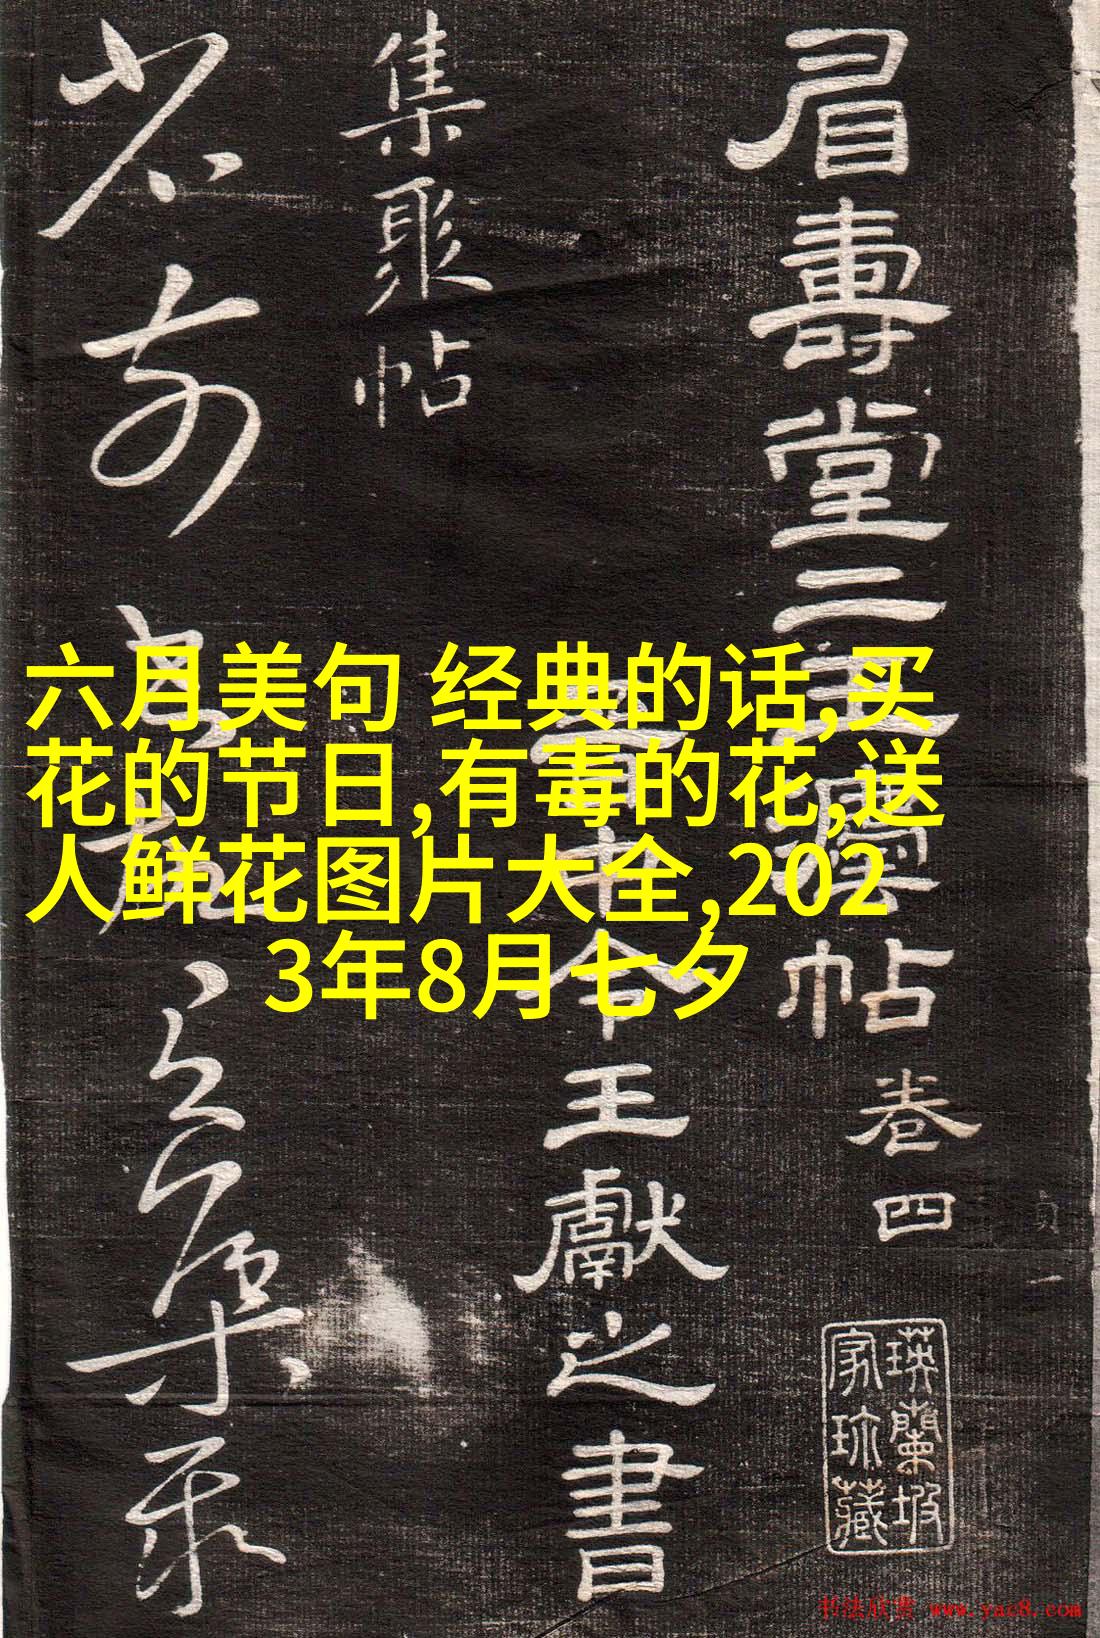 六月美句 经典的话,买
花的节日,有毒的花,送
人鲜花图片大全,202
3年8月七夕
眉壽堂二王帖卷四
瑛蘭坡
家珎藏
晉中令王獻之書
集聚帖
省前書故集聚
书法欣赏 www.yac8.com